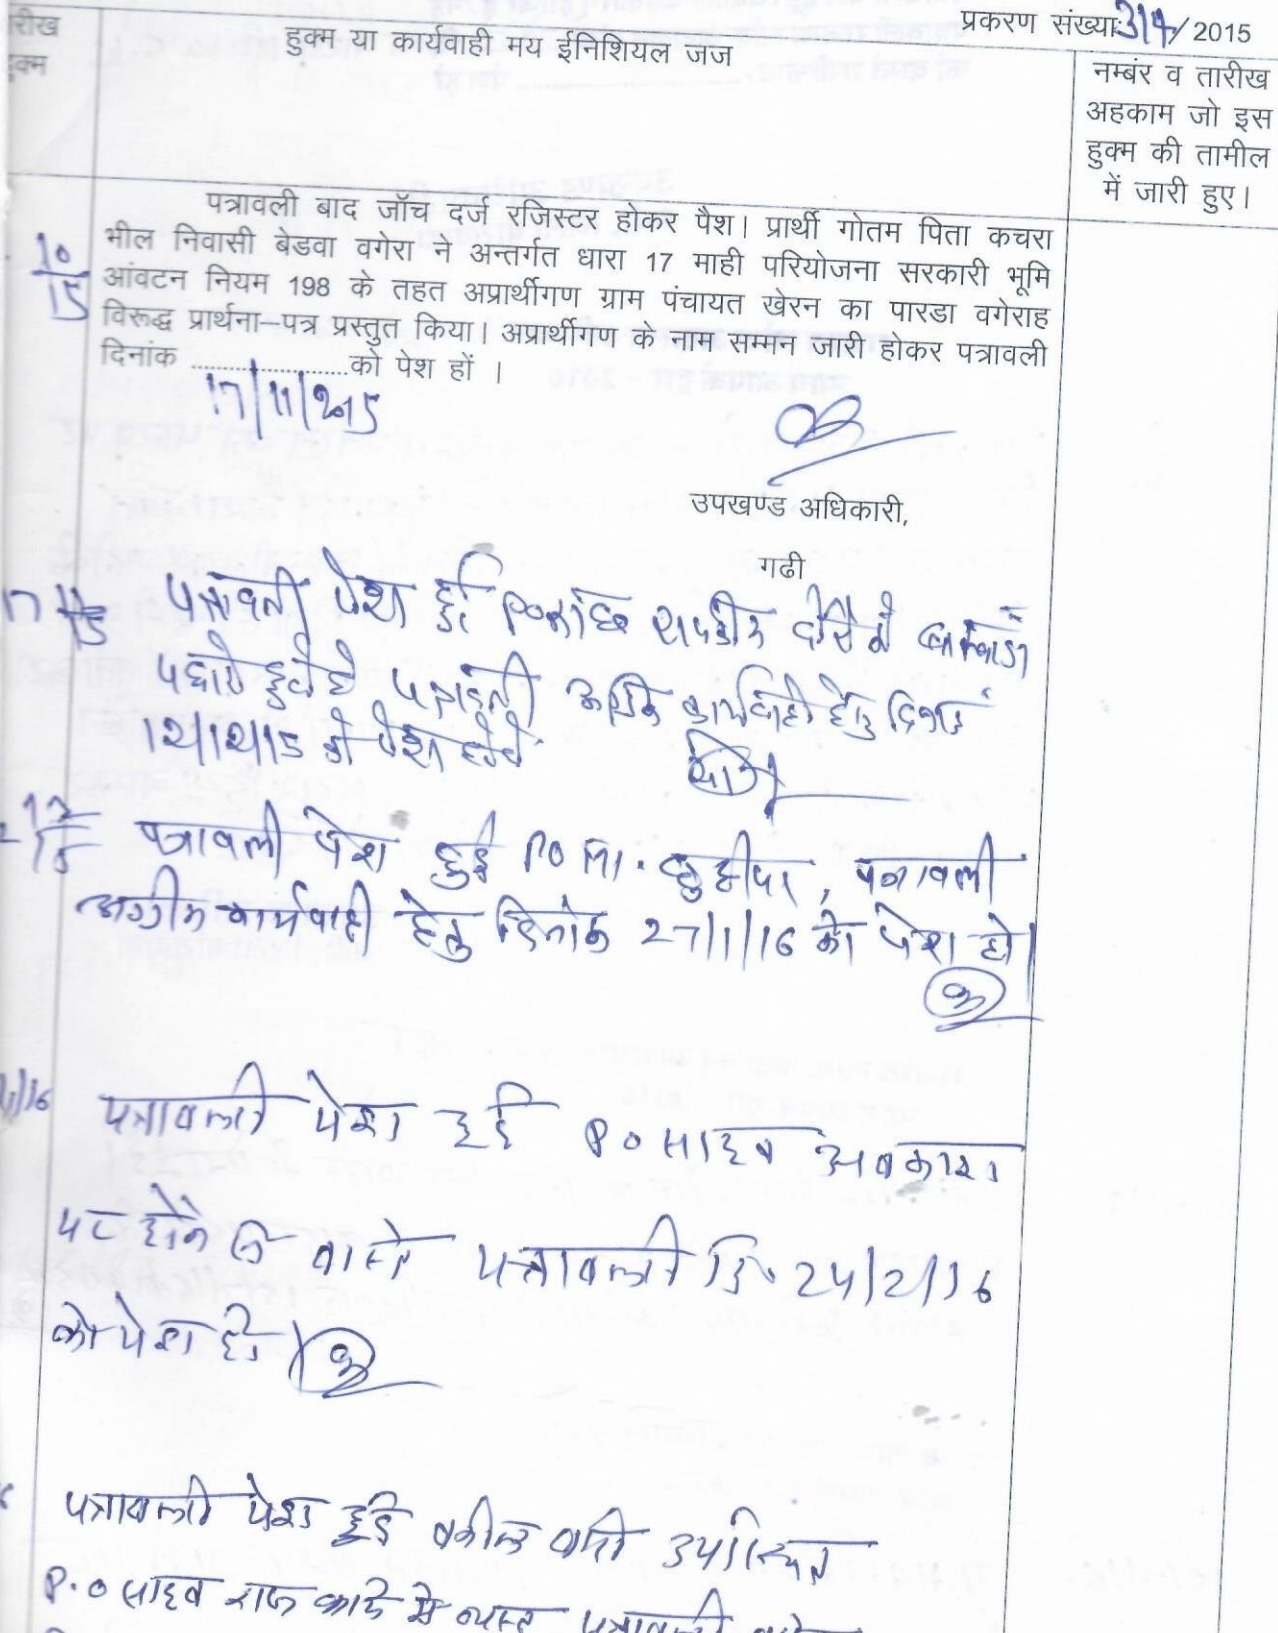 प्रकरण संख्या 314/2015
रीख
क्म
हुक्म या कार्यवाही मय ईनिशियल जज
नम्बंर व तारीख
अहकाम जो इस
हुक्म की तामील
में जारी हुए।
10
15
पत्रावली बाद जॉच दर्ज रजिस्टर होकर पैश। प्रार्थी गोतम पिता कचरा
भील निवासी बेडवा वगेरा ने अन्तर्गत धारा 17 माही परियोजना सरकारी भूमि
आंवटन नियम 198 के तहत अप्रार्थीगण ग्राम पंचायत खेरन का पारडा वगेराह
विरूद्ध प्रार्थना–पत्र प्रस्तुत किया। अप्रार्थीगण के नाम सम्मन जारी होकर पत्रावली
दिनांक ........................को पेश हों ।
17/11/2015
उपखण्ड अधिकारी,
गढी
पत्रावली पेश हुई
पत्रावली कार्यवाही हेतु दिनांक
को पेश होवे
पत्रावली पेश हुई PO पत्रावली
अग्रीम कार्यवाही हेतु दिनांक 27/1/16 को पेश हो।
1/16 पत्रावली पेश हुई P०साहब अवकाश
पर होने के वास्ते पत्रावली दि. 24/2/16
को पेश हो।
पत्रावली पेश हुई वकील वादी उपस्थित
P.०साहब राज कार्य मे व्यस्त पत्रावली